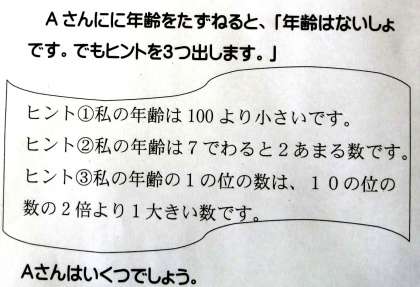 Aさんにに年齢をたずねると、「年齢はないしょ
です。でもヒントを3つ出します。」
ヒント①私の年齢は100より小さいです。
ヒント②私の年齢は7でわると2あまる数です。
ヒント③私の年齢の1の位の数は、10の位の
数の2倍より1大きい数です。
Aさんはいくつでしょう。